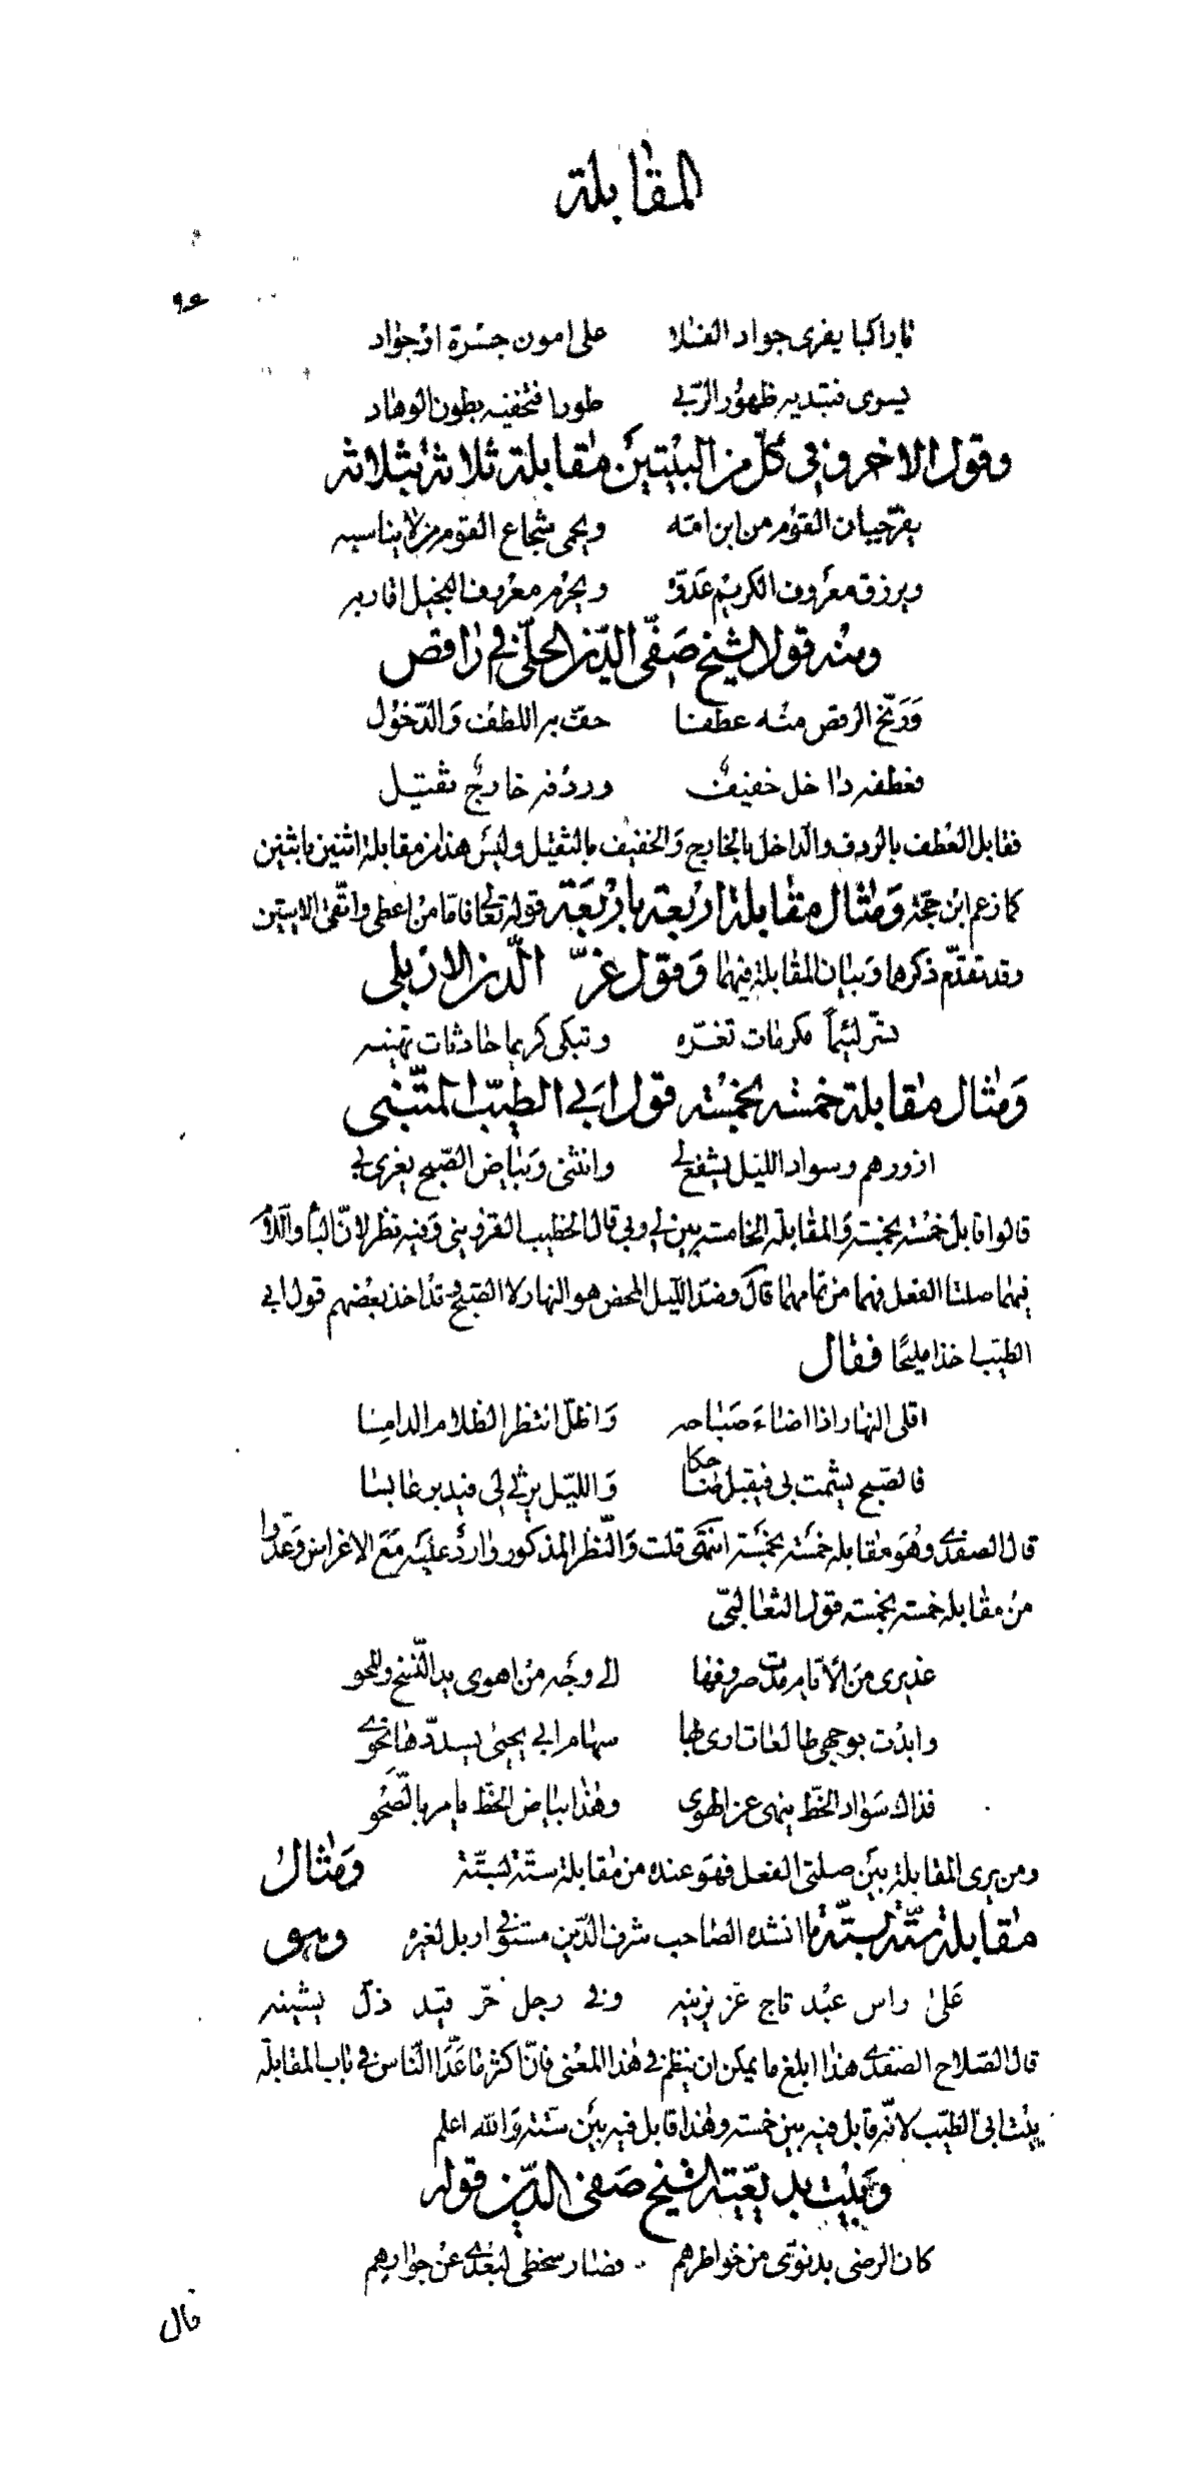 المقابلة
يا راكبا يفرى جواد الفلا على امون جسرة او جواد
يسرى فتبديه ظهور الربى طورا فتخفيه بطون الوهاد
وقول الاخر وفي كل من البيتين مقابلة ثلاثة بثلاثة
يفر جبان القوم من ابن امه ويحمى شجاع القوم من لا يناسبه
ويرزق معروف الكريم عدوه ويحرم معروف البخيل اقاربه
ومنه قول الشيخ صفى الدين الحلى في راقص
ورنح الرقص منه عطفا حف به اللطف والدخول
فعطفه داخل خفيف وردفه خارج ثقيل
فقابل العطف بالردف والداخل بالخارج والخفيف بالثقيل وليس هذا من مقابلة اثنين باثنين
كما زعم ابن حجة ومثال مقابلة اربعة باربعة قوله تعالى فاما من اعطى واتقى الايتين
وقد تقدم ذكرها وبيان المقابلة فيهما وقول عز الدين الاربلى
تسر لئيماً مكرمات تغره وتبكى كريما حادثات تهينه
ومثال مقابلة خمسة بخمسة قول ابى الطيب المتنبى
ازورهم وسواد الليل يشفع لى وانثنى وبياض الصبح يغرى بى
قالوا قابل خمسة بخمسة والمقابلة الخامسة بين لى وبى قال الخطيب القزوينى وفيه نظر لان الباء واللام
فيهما صلتا الفعل فهما من تمامهما قال وضد الليل المحض هو النهار لا الصبح وقد اخذ بعضهم قول ابى
الطيب اخذا مليحًا فقال
اقلى النهار اذا اضاء صباحه واظل انتظر الظلام الدامسا
فالصبح يشمت بى فيقبل ضاحكا والليل يرثى لى فيدبر عابسا
قال الصفدى وهو مقابله خمسة بخمسة انتهى قلت والنظر المذكور وارد عليه مع الاغراس وعدوا
من مقابله خمسة بخمسة قول الثعالبى
عذيرى من الايام مدت صروفها الى وجه من اهوى يد النسخ والمحو
وابدت بوجهى طالعات ارى لها سهام ابى يحيى يسددها نحوى
فذاك سواد الخط ينهى عن الهوى وهذا بياض الخط يامر بالصحو
ومن يرى المقابلة بين صلتى الفعل فهو عنده من مقابلة ستة بستة ومثال
مقابلة ستة بستة ما انشده الصاحب شرف الدين مستوفى اربل لغيره وهو
على راس عبد تاج عز يزينه وفى رجل حر قيد ذل يشينه
قال الصلاح الصفدى هذا ابلغ ما يمكن ان ينظم فى هذا المعنى فان اكثر ما عد الناس فى باب المقابلة
بيت ابى الطيب لانه قابل فيه بين خمسة وهذا قابل فيه بين ستة والله اعلم
وبيت بديعية الشيخ صفى الدين قوله
كان الرضى بدنوى من خواطرهم فصار سخطى لبعدى عن جوارهم
قال